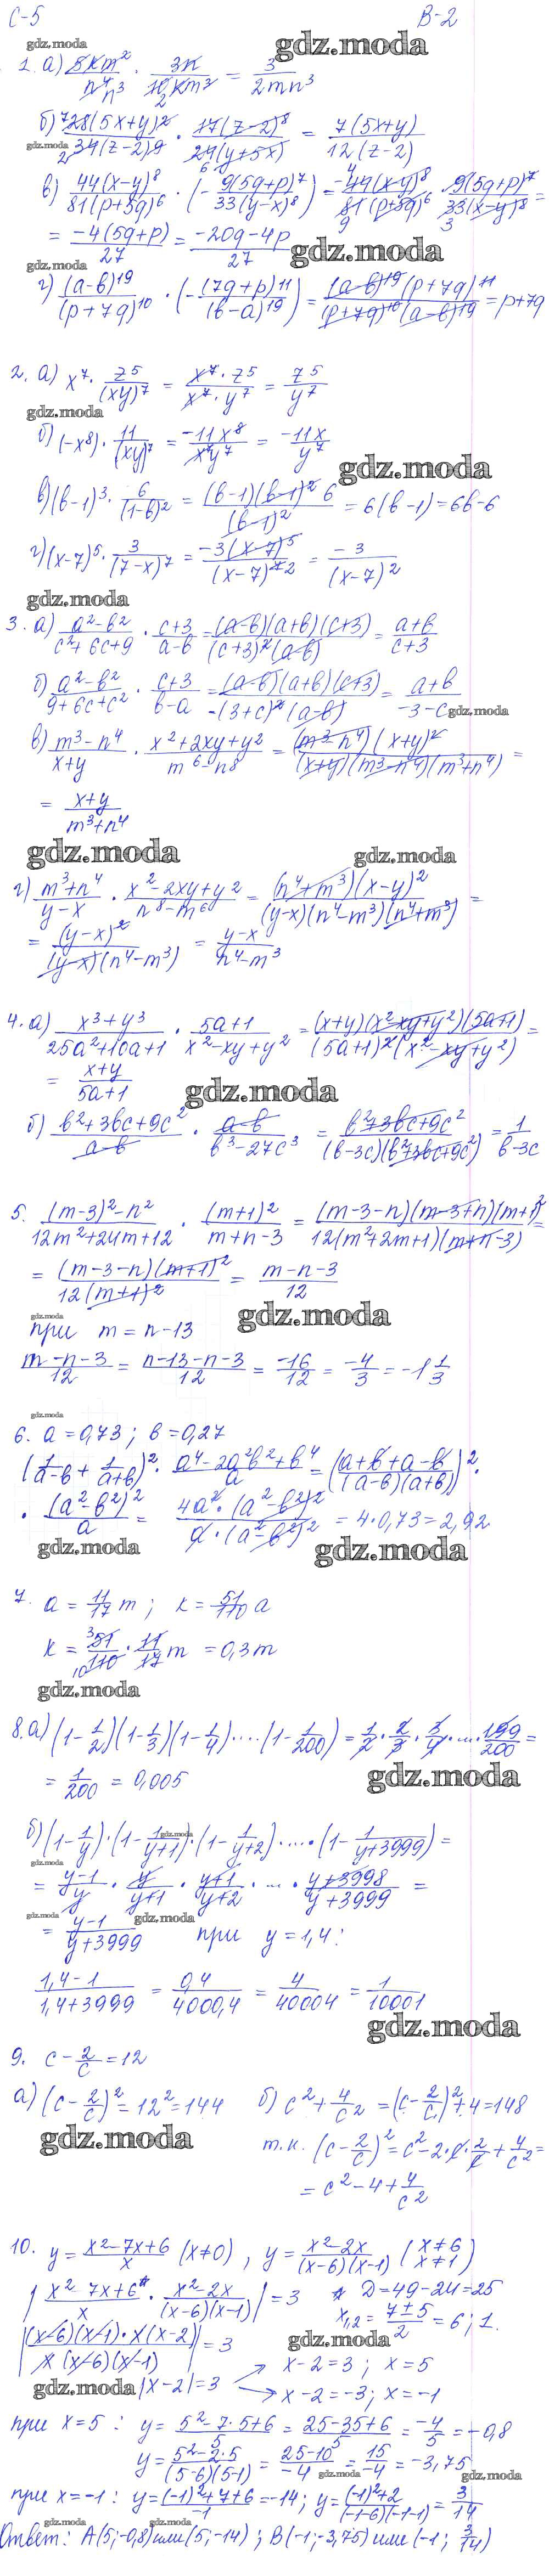 С-5 В-2
gdz.moda gdz.moda
1. а) 5km²/n⁴ · 3n/10km³ = 3/2mn³
б) 28(5x+y)/34(z-2)⁹ · 17(z-2)⁸/24(y+5x) = 7(5x+y)/12(z-2)
gdz.moda
в) 44(x-y)⁸/81(p+5q)⁶ · (-9(5q+p)⁷/33(y-x)⁸) = -44(x-y)⁸/81(p+5q)⁶ · 9(5q+p)⁷/33(x-y)⁸ =
= -4(5q+p)/27 = -20q-4p/27
gdz.moda
gdz.moda
г) (a-b)¹⁹/(p+7q)¹⁰ · (-(7q+p)¹¹/(b-a)¹⁹) = (a-b)¹⁹(p+7q)¹¹/(p+7q)¹⁰(a-b)¹⁹ = p+7q
2. а) x⁷ · z⁵/(xy)⁷ = x⁷·z⁵/x⁷·y⁷ = z⁵/y⁷
gdz.moda
б) (-x⁸) · 11/(xy)⁷ = -11x⁸/x⁷y⁷ = -11x/y⁷
gdz.moda
в) (b-1)³ · 6/(1-b)² = (b-1)(b-1)²6/(b-1)² = 6(b-1) = 6b-6
г) (x-7)⁵ · 3/(7-x)⁷ = -3(x-7)⁵/(x-7)⁷² = -3/(x-7)²
gdz.moda
3. а) a²-b²/c²+6c+9 · c+3/a-b = (a-b)(a+b)(c+3)/(c+3)²(a-b) = a+b/c+3
б) a²-b²/9+6c+c² · c+3/b-a = (a-b)(a+b)(c+3)/-(3+c)²(a-b) = a+b/-3-c
gdz.moda
в) m³-n⁴/x+y · x²+2xy+y²/m⁶-n⁸ = (m³-n⁴)(x+y)²/(x+y)(m³-n⁴)(m³+n⁴) =
= x+y/m³+n⁴
gdz.moda gdz.moda
г) m³+n⁴/y-x · x²-2xy+y²/n⁸-m⁶ = (n⁴+m³)(x-y)²/(y-x)(n⁴-m³)(n⁴+m³) =
= (y-x)²/(y-x)(n⁴-m³) = y-x/n⁴-m³
4. а) x³+y³/25a²+10a+1 · 5a+1/x²-xy+y² = (x+y)(x²-xy+y²)(5a+1)/(5a+1)²(x²-xy+y²) =
= x+y/5a+1
gdz.moda
б) b²+3bc+9c²/a-b · a-b/b³-27c³ = b²+3bc+9c²/(b-3c)(b²+3bc+9c²) = 1/b-3c
5. (m-3)²-n²/12m²+24m+12 · (m+1)²/m+n-3 = (m-3-n)(m-3+n)(m+1)²/12(m²+2m+1)(m+n-3) =
= (m-3-n)(m+1)²/12(m+1)² = m-n-3/12
gdz.moda gdz.moda
при m = n-13
m-n-3/12 = n-13-n-3/12 = -16/12 = -4/3 = -1 1/3
gdz.moda
6. a = 0,73; b = 0,27
(1/a-b + 1/a+b)² · a⁴-2a²b²+b⁴/a = (a+b+a-b/(a-b)(a+b))² ·
· (a²-b²)²/a = 4a²·(a²-b²)²/a·(a²-b²)² = 4·0,73 = 2,92
gdz.moda gdz.moda
7. a = 11/17 m; k = 51/110 a
k = 51/110 · 11/17 m = 0,3m
gdz.moda
8. а) (1-1/2)(1-1/3)(1-1/4)....(1-1/200) = 1/2 · 2/3 · 3/4 · ... · 199/200 =
= 1/200 = 0,005
gdz.moda
б) (1-1/y)·(1-1/y+1)·(1-1/y+2)·...·(1-1/y+3999) =
gdz.moda
gdz.moda
= y-1/y · y/y+1 · y+1/y+2 · ... · y+3998/y+3999 =
gdz.moda gdz.moda
= y-1/y+3999 при y = 1,4:
1,4-1/1,4+3999 = 0,4/4000,4 = 4/40004 = 1/10001
gdz.moda
9. c - 2/c = 12
а) (c-2/c)² = 12² = 144 б) c²+4/c² = (c-2/c)²+4 = 148
gdz.moda
т.к. (c-2/c)² = c²-2·c·2/c+4/c² =
= c²-4+4/c²
10. y = x²-7x+6/x (x≠0), y = x²-2x/(x-6)(x-1) (x≠6 x≠1)
|x²-7x+6*/x · x²-2x/(x-6)(x-1)| = 3 * D = 49-24 = 25
x₁,₂ = 7±5/2 = 6; 1.
|(x-6)(x-1)·x(x-2)/x(x-6)(x-1)| = 3
gdz.moda
gdz.moda
|x-2| = 3 x-2 = 3; x = 5
x-2 = -3; x = -1
при x = 5: y = 5²-7·5+6/5 = 25-35+6/5 = -4/5 = -0,8
y = 5²-2·5/(5-6)(5-1) = 25-10/-4 = 15/-4 = -3,75
gdz.moda gdz.moda
при x = -1: y = (-1)²+7+6/-1 = -14; y = (-1)²+2/(-1-6)(-1-1) = 3/14
gdz.moda gdz.moda
Ответ: A(5;-0,8) или (5;-14); B(-1;-3,75) или (-1; 3/14)